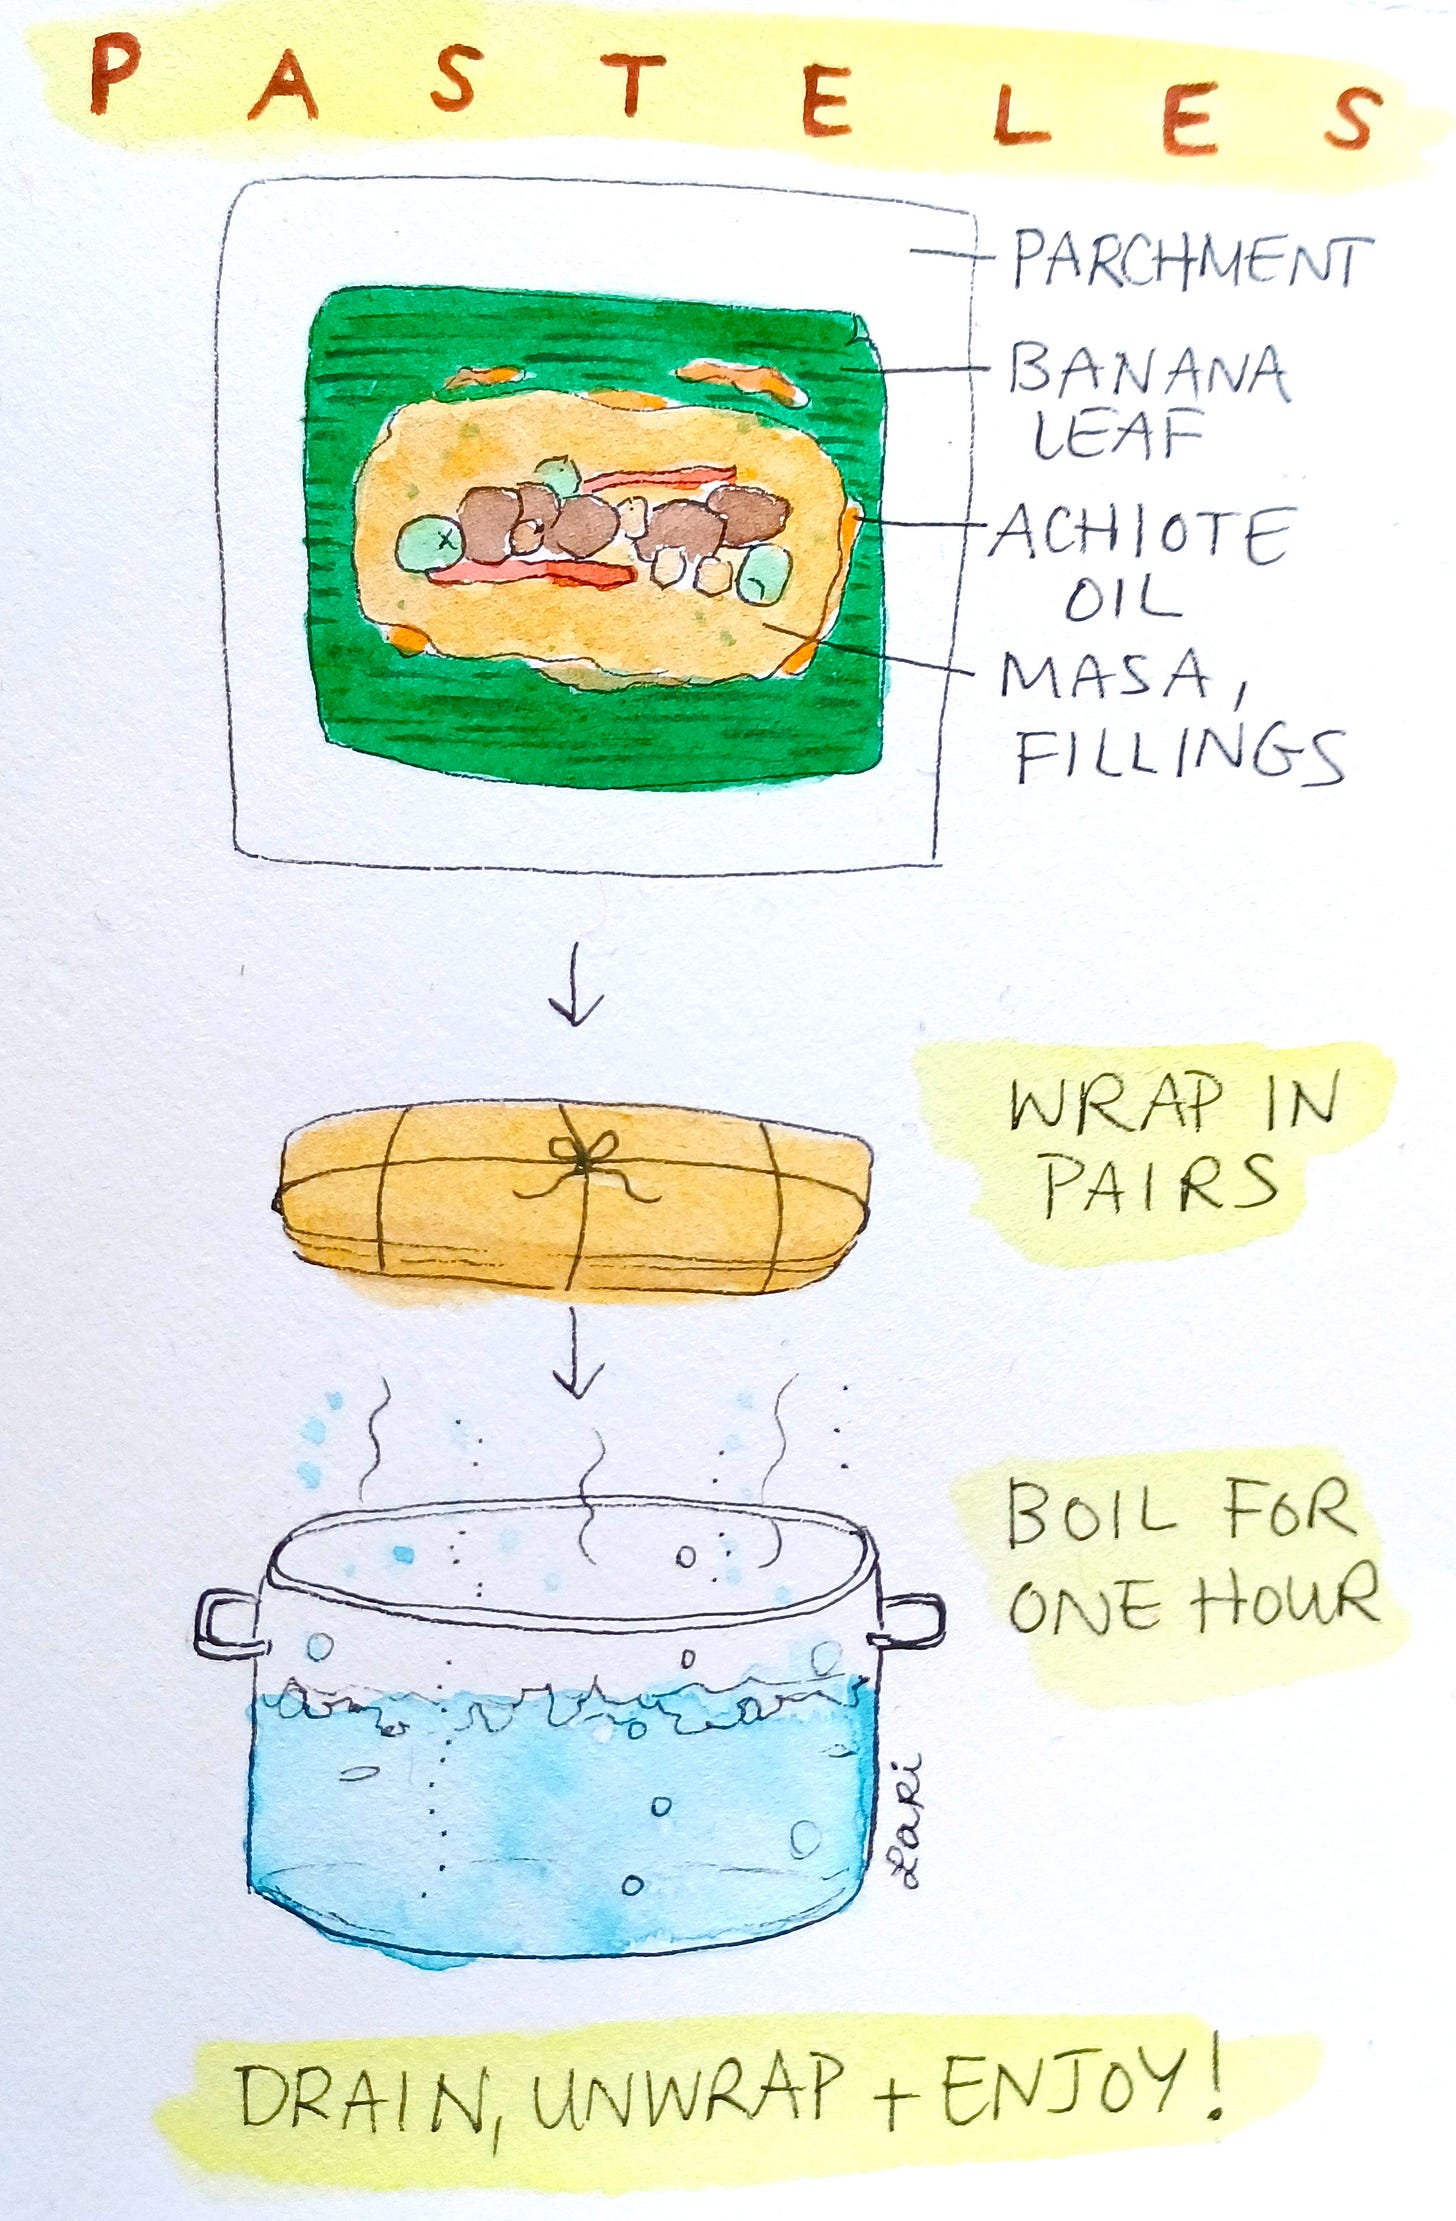 PASTELES
PARCHMENT
BANANA
LEAF
ACHIOTE
OIL
MASA,
FILLINGS
WRAP IN
PAIRS
BOIL FOR
ONE HOUR
Lari
DRAIN, UNWRAP + ENJOY!